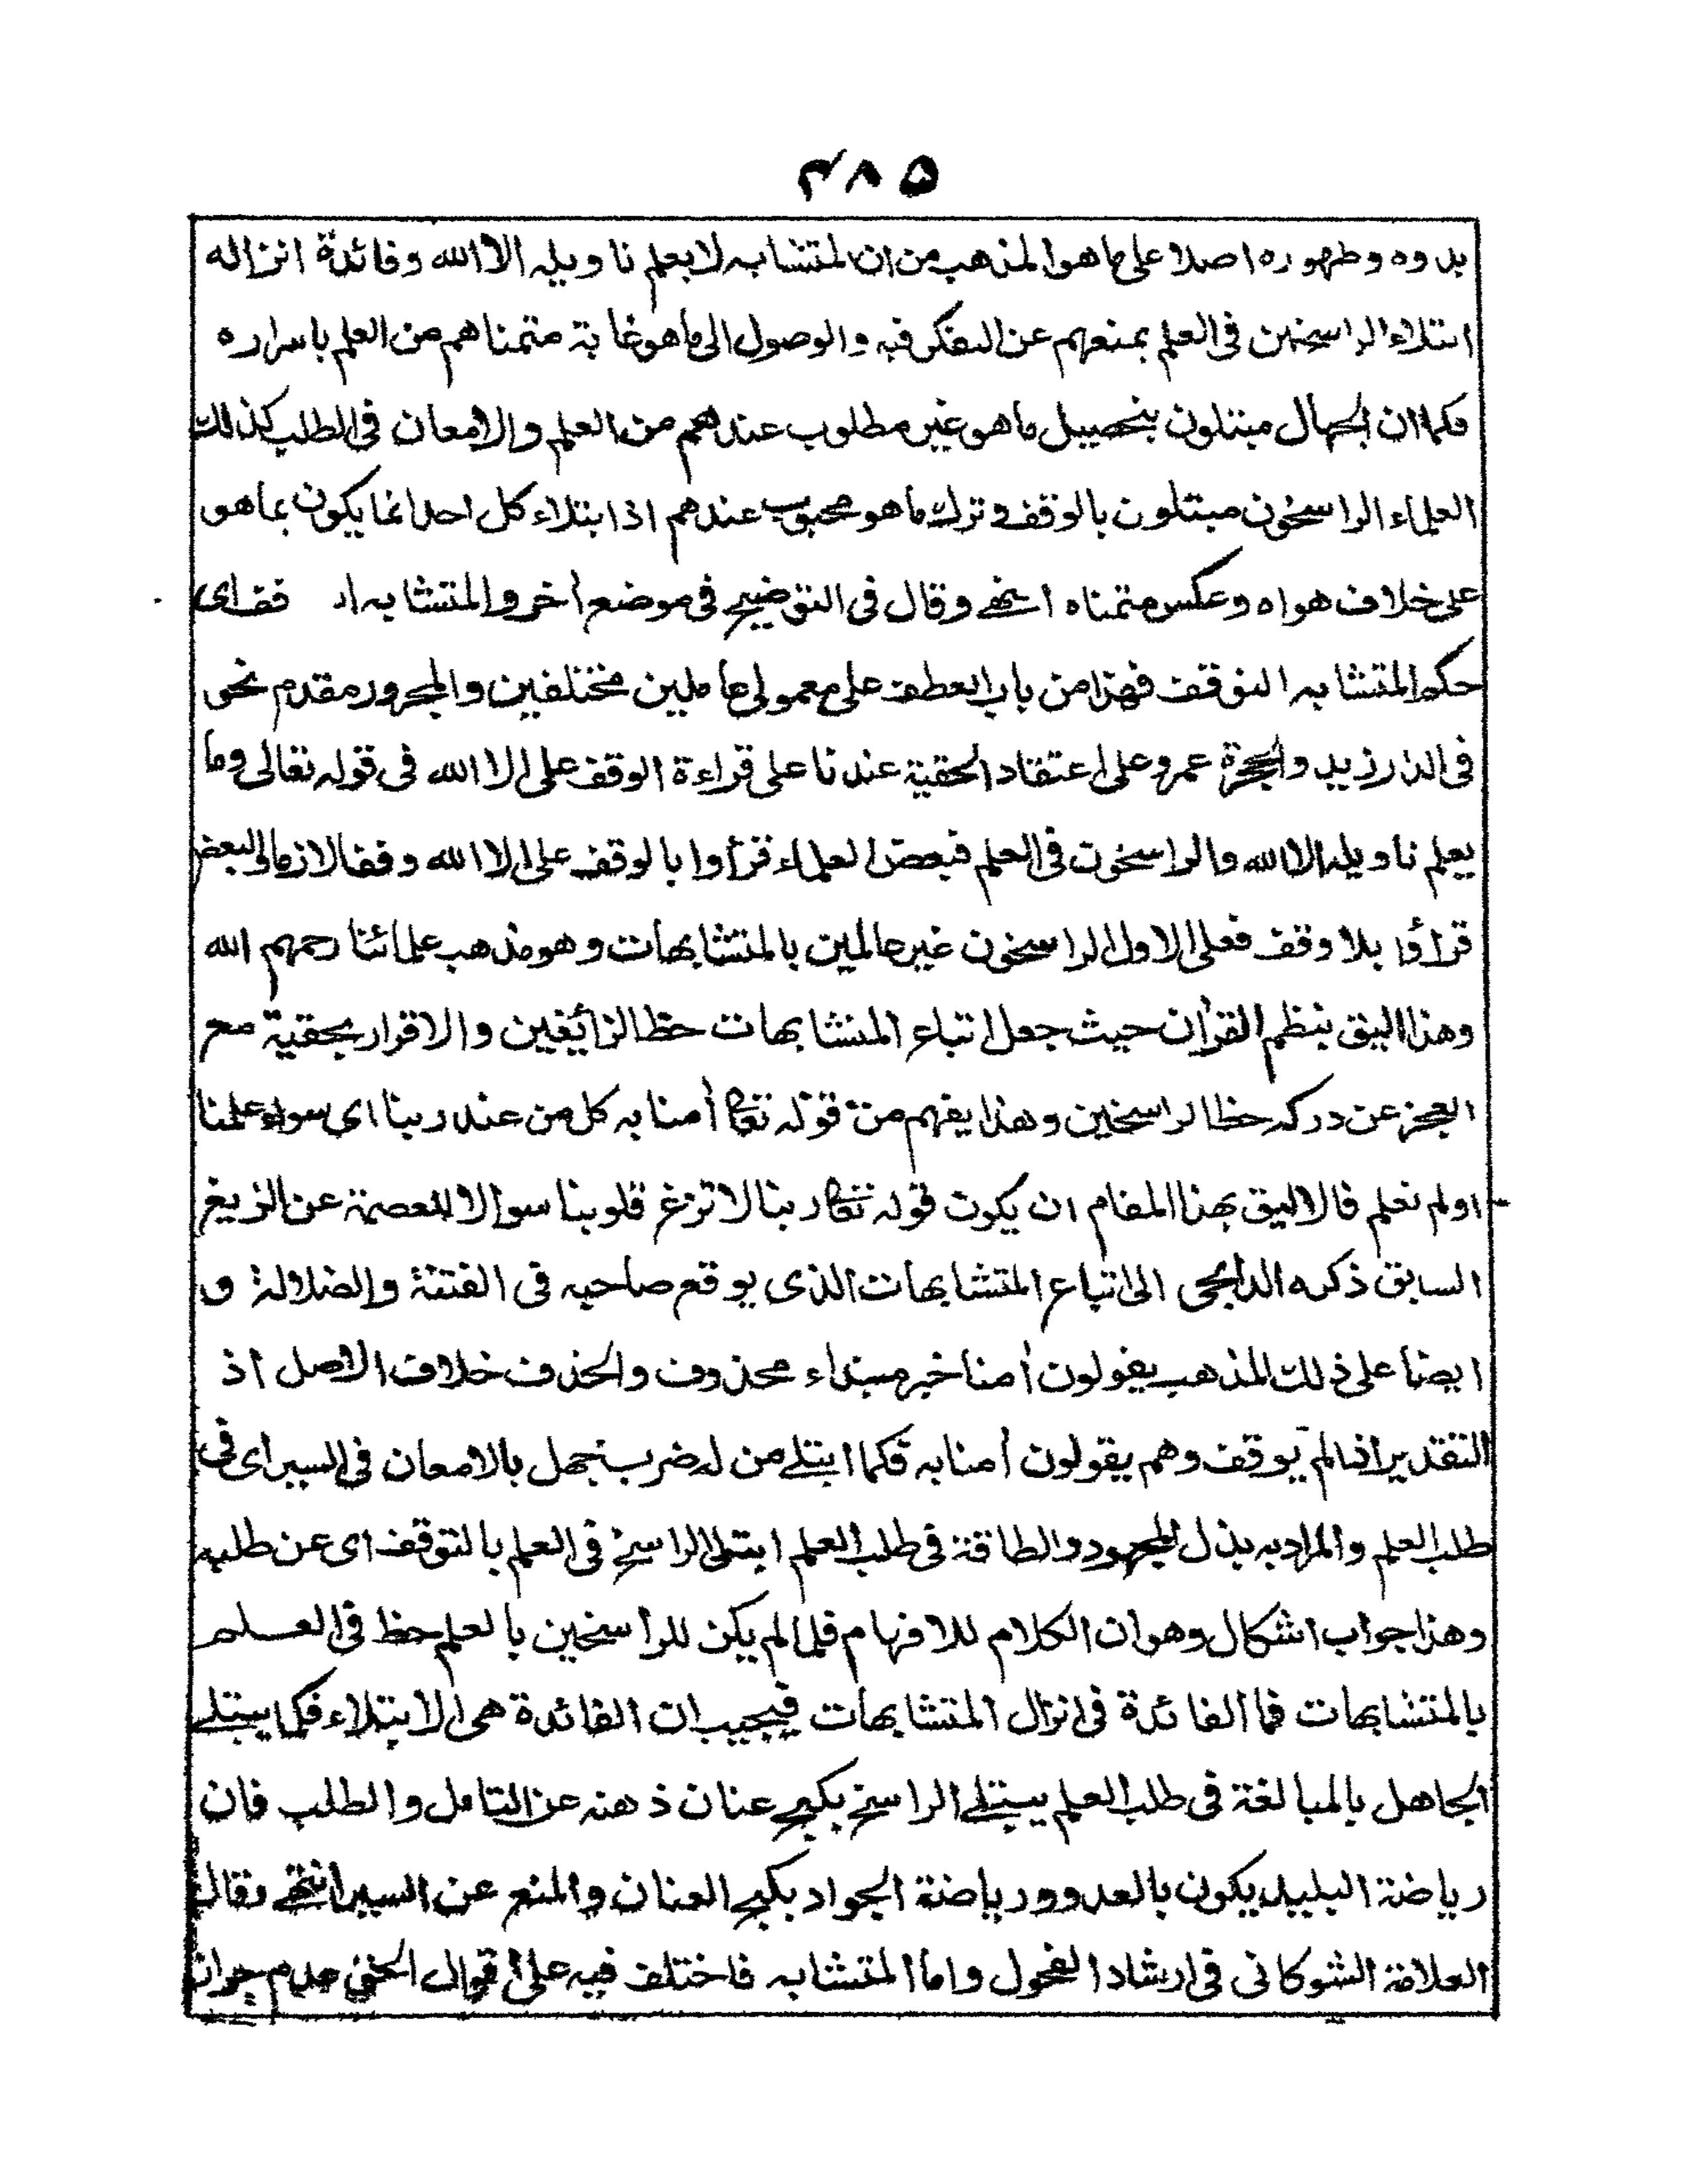 ۴۸۵
بدوه وظهوره اصلا على ما هو المذهب من ان المتشابه لا يعلم تاويله الا الله وفائدة انزاله
ابتلاء الراسخين فى العلم بمنعهم عن التفكر فيه والوصول الى ما هو غاية متمناهم من العلم باسراره
فكما ان الجهال مبتلون بتحصيل ما هو غير مطلوب عندهم من العلم والامعان فى الطلب كذلك
العلماء الراسخون مبتلون بالوقف وترك ما هو محبوب عندهم اذ ابتلاء كل احد انما يكون بما هو
على خلاف هواه وعكس متمناه انتهى وقال فى التوضيح فى موضع أخر والمتشابه اى
حكم المتشابه التوقف فهذا من باب العطف على معمولى عاملين مختلفين والمجرور مقدم نحو
فى الدار زيد والحجرة عمرو على اعتقاد الحقية عندنا على قراءة الوقف على الا الله فى قوله تعالى وما
يعلم تاويله الا الله والراسخون فى العلم فبعض العلماء قرأوا بالوقف على الا الله وقفا لازما والبعض
قرأوا بلا وقف فعلى الاول الراسخون غير عالمين بالمتشابهات وهو مذهب علمائنا رحمهم الله
وهذا اليق بنظم القرأن حيث جعل اتباع المتشابهات حظ الزائغين والاقرار بحقية مع
العجز عن دركه حظ الراسخين وهذا يفهم من قوله تعالى أمنا به كل من عند ربنا اى سواء علمنا
اولم نعلم فالاليق بهذا المقام ان يكون قوله تعالى ربنا لا تزغ قلوبنا سوالا للعصمة عن الزيغ
السابق ذكره الداعى الى اتباع المتشابهات الذى يوقع صاحبه فى الفتنة والضلالة و
ايضا على ذلك المذهب يقولون أمنا خبر مبتداء محذوف والحذف خلاف الاصل اذ
التقدير اذا لم يوقف وهم يقولون أمنا به فكما ابتلى من له ضرب جهل بالامعان فى السير اى فى
طلب العلم والمراد به بذل المجهود والطاقة فى طلب العلم ابتلى الراسخ فى العلم بالتوقف اى عن طلبه
وهذا جواب اشكال وهو ان الكلام للافهام فلما لم يكن للراسخين بالعلم حظ فى العلم
بالمتشابهات فما الفائدة فى انزال المتشابهات فيجيب ان الفائدة هى الابتلاء فكما يبتلى
الجاهل بالمبالغة فى طلب العلم يبتلى الراسخ بكبح عنان ذهنه عن التامل والطلب فان
رياضة البليد يكون بالعدو ورياضة الجواد بكبح العنان والمنع عن السير انتهى وقال
العلامة الشوكانى فى ارشاد الفحول واما المتشابه فاختلف فيه على اقوال الحق عدم جواز